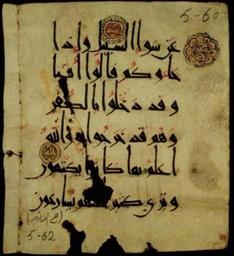 5-60
عن سواء السبيل واذا
جاوكم قالوا امنا
وقد دخلوا بالكفر
وهم قد خرجوا به والله
اعلم بما كانوا يكتمون
وترى كثيرا منهم يسارعون
5-62